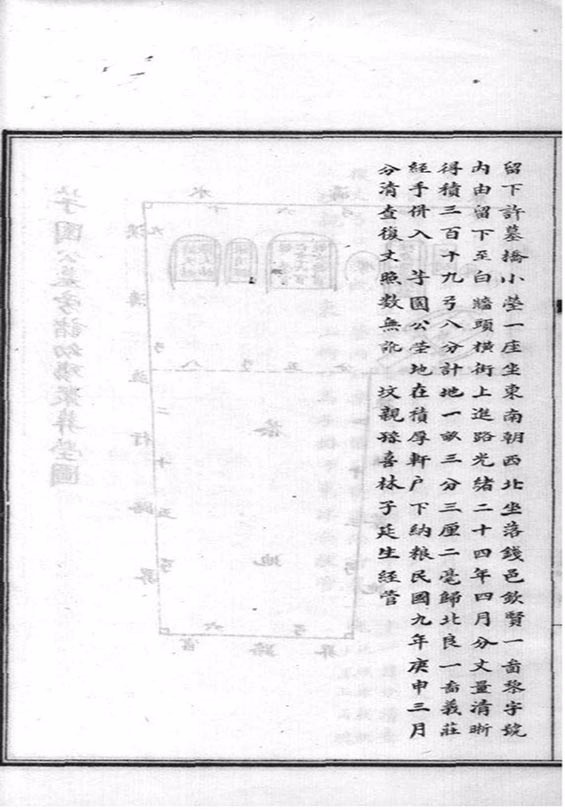 留下許墓橋小塋一座坐東南朝西北坐落錢邑欽賢一啚黎字號
內由留下至白牆頭橫街上進路光緒二十四年四月分丈量清晰
得積三百十九弓八分計地一畝三分三厘二毫歸北良一啚義莊
經手併入芋園公塋地在積厚軒户下納粮民國九年庚申三月
分清查復丈照數無訛 墳親 喜林子廷生經管